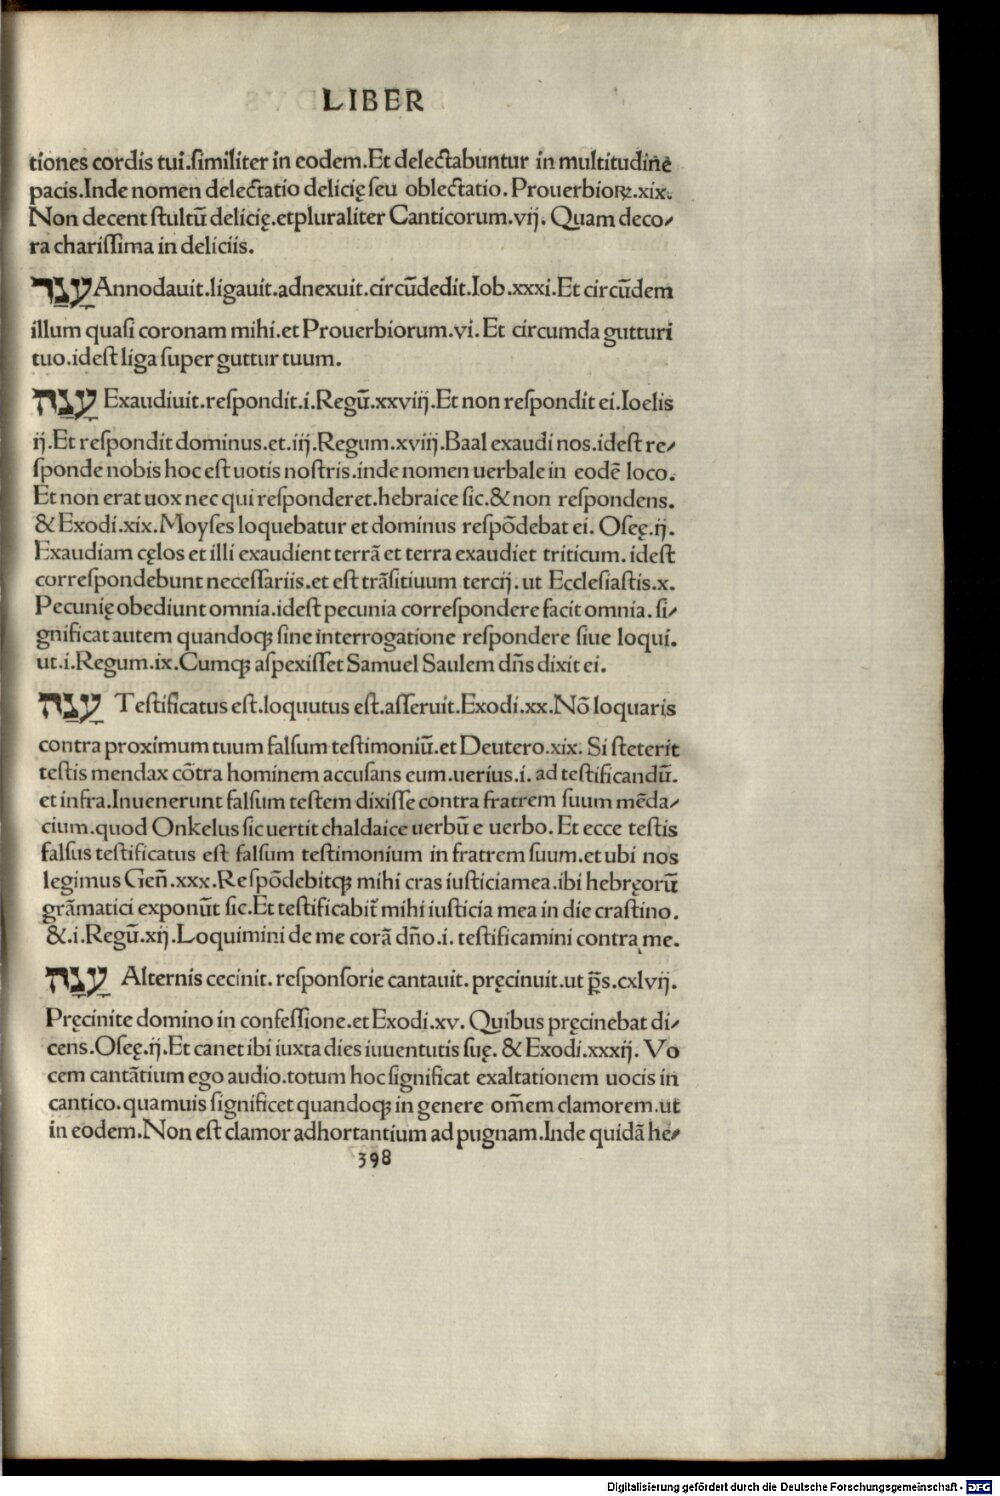 LIBER
tiones cordis tui.ſimiliter in eodem.Et delectabuntur in multitudinē
pacis.Inde nomen delectatio delicię ſeu oblectatio. Prouerbioꝝ.xix.
Non decent ſtultū delicię.etpluraliter Canticorum.vij. Quam deco⸗
ra chariſſima in deliciis.
עָנַד Annodauit.ligauit.adnexuit.circūdedit.Iob.xxxi.Et circūdem
illum quaſi coronam mihi.et Prouerbiorum.vi. Et circumda gutturi
tuo.ideſt liga ſuper guttur tuum.
עָנָה Exaudiuit.reſpondit.i.Regū.xxviij.Et non reſpondit ei.Ioelis
ij.Et reſpondit dominus.et.iij.Regum.xviij.Baal exaudi nos.ideſt re⸗
ſponde nobis hoc eſt uotis noſtris.inde nomen uerbale in eodē loco.
Et non erat uox nec qui reſponderet.hebraice ſic.& non reſpondens.
& Exodi.xix.Moyſes loquebatur et dominus reſpōdebat ei. Oſeę.ij.
Exaudiam cęlos et illi exaudient terrā et terra exaudiet triticum. ideſt
correſpondebunt neceſſariis.et eſt trāſitiuum tercij. ut Eccleſiaſtis.x.
Pecunię obediunt omnia.ideſt pecunia correſpondere facit omnia. ſi⸗
gnificat autem quandoqꝫ ſine interrogatione reſpondere ſiue loqui.
ut.i.Regum.ix.Cumqꝫ aſpexiſſet Samuel Saulem dn̄s dixit ei.
עָנָה Teſtificatus eſt.loquutus eſt.aſſeruit.Exodi.xx.Nō loquaris
contra proximum tuum falſum teſtimoniū.et Deutero.xix. Si ſteterit
teſtis mendax cōtra hominem accuſans eum.uerius.i. ad teſtificandū.
et infra.Inuenerunt falſum teſtem dixiſſe contra fratrem ſuum mēda⸗
cium.quod Onkelus ſic uertit chaldaice uerbū e uerbo. Et ecce teſtis
falſus teſtificatus eſt falſum teſtimonium in fratrem ſuum.et ubi nos
legimus Gen̄.xxx.Reſpōdebitqꝫ mihi cras iuſticiamea.ibi hebręorū
grāmatici exponūt ſic.Et teſtificabit̄ mihi iuſticia mea in die craſtino.
&.i.Regū.xij.Loquimini de me corā dn̄o.i. teſtificamini contra me.
עָנָה Alternis cecinit. reſponſorie cantauit. pręcinuit.ut p̄s.cxlvij.
Pręcinite domino in confeſſione.et Exodi.xv. Quibus pręcinebat di⸗
cens.Oſeę.ij.Et canet ibi iuxta dies iuuentutis ſuę. & Exodi.xxxij. Vo
cem cantātium ego audio.totum hoc ſignificat exaltationem uocis in
cantico.quamuis ſignificet quandoqꝫ in genere om̄em clamorem.ut
in eodem.Non eſt clamor adhortantium ad pugnam.Inde quidā he⸗
398
Digitalisierung gefördert durch die Deutsche Forschungsgemeinschaft - DFG